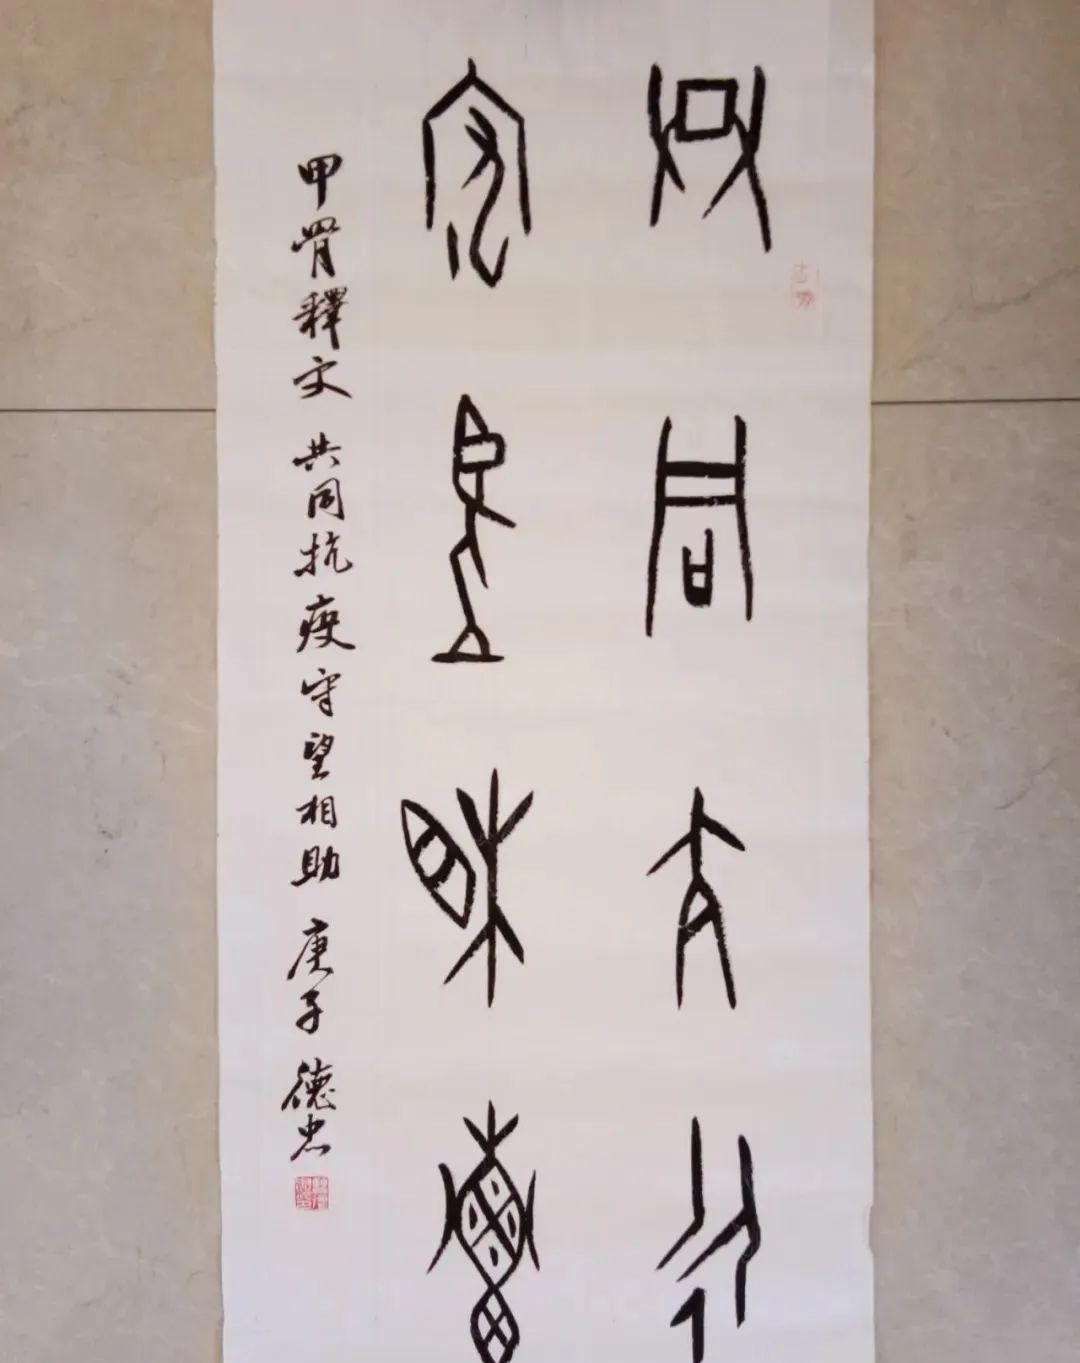 共同抗疫
守望相助
甲骨釋文 共同抗疫守望相助 庚子 德忠